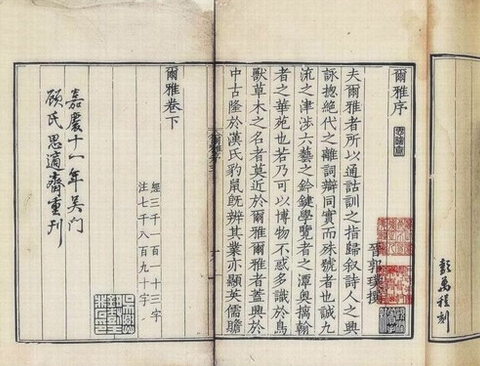 彭萬程刻
爾雅序
晉郭璞撰
夫爾雅者所以通詁訓之指歸叙詩人之興
詠揔絕代之離詞辯同實而殊號者也誠九
流之津涉六藝之鈐鍵學覽者之潭奧摛翰
者之華苑也若乃可以博物不惑多識於鳥
獸草木之名者莫近於爾雅爾雅者蓋興於
中古隆於漢氏豹鼠旣辨其業亦顯英儒贍
爾雅卷下
經三千一百一十三字
注七千八百九十字
嘉慶十一年吳門
顧氏思適齋重刊